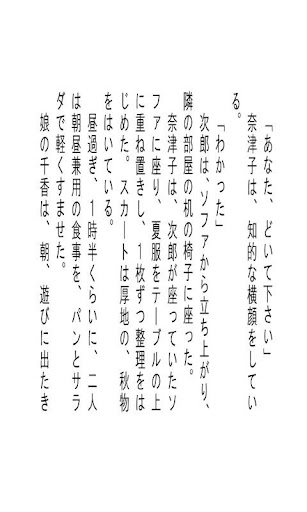 「あなた、どいて下さい」
奈津子は、知的な横顔をしてい
る。
「わかった」
次郎は、ソファから立ち上がり、
隣の部屋の机の椅子に座った。
奈津子は、次郎が座っていたソ
ファに座り、夏服をテーブルの上
に重ね置きし、1枚ずつ整理をは
じめた。スカートは厚地の、秋物
をはいている。
昼過ぎ、1時半くらいに、二人
は朝昼兼用の食事を、パンとサラ
ダで軽くすませた。
娘の千香は、朝、遊びに出たき